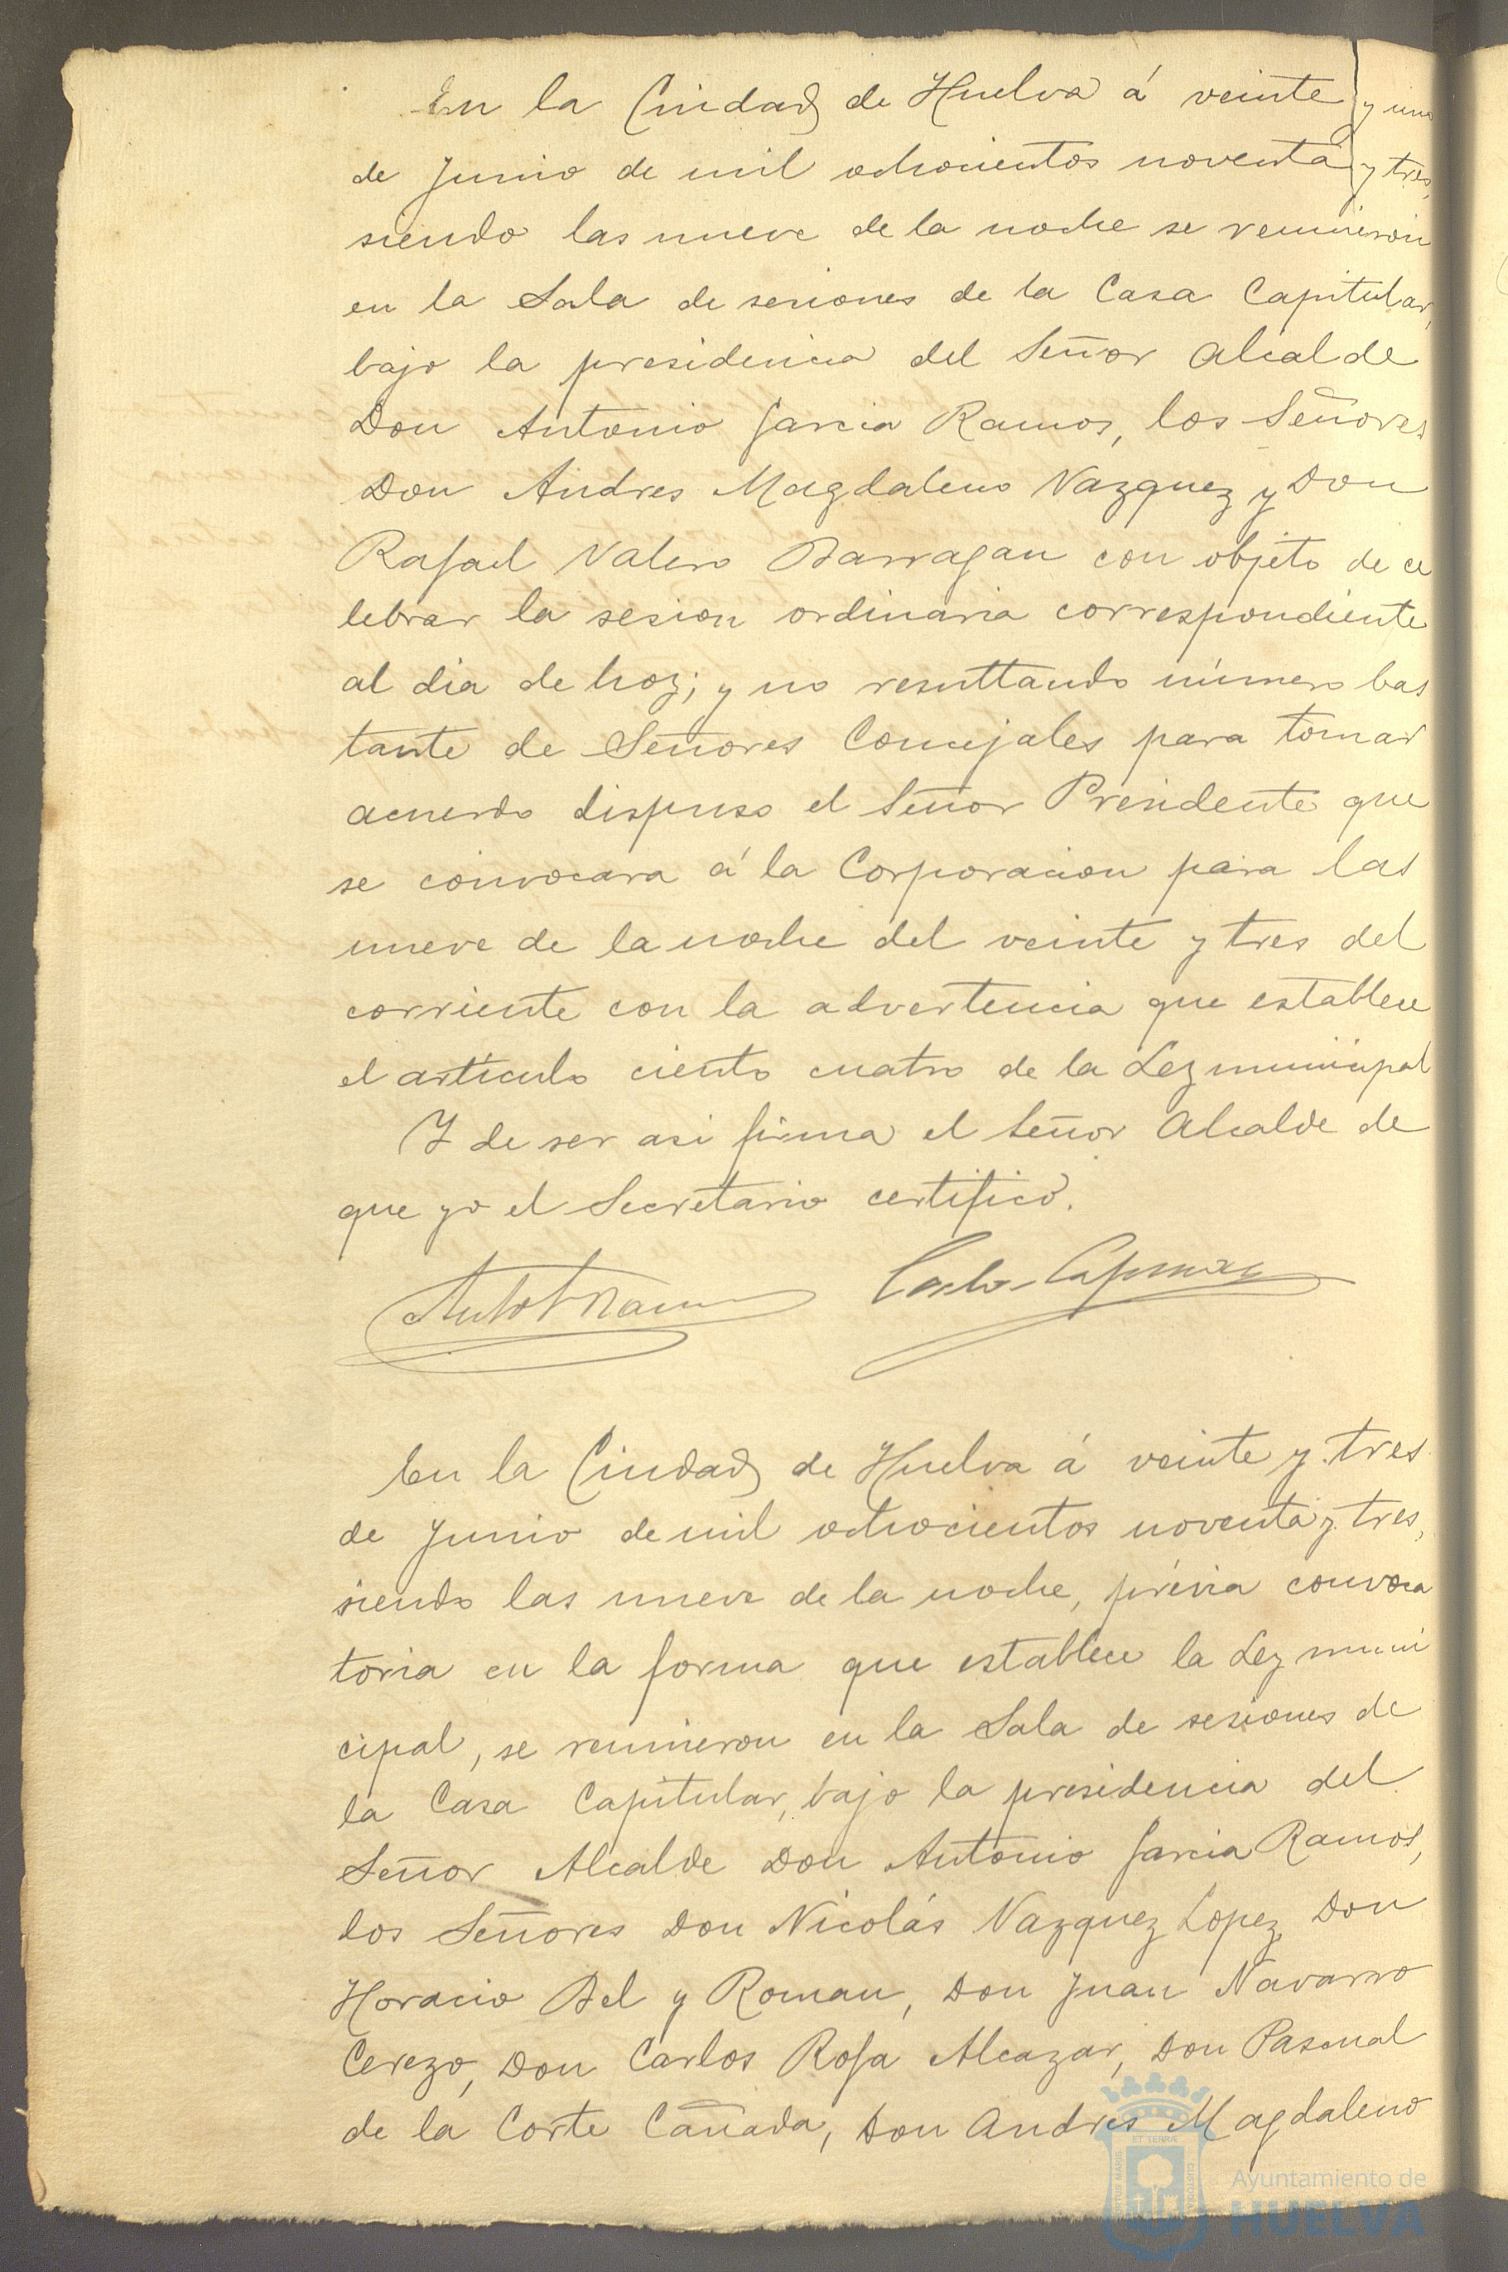 En la Ciudad de Huelva á veinte y uno
de Junio de mil ochocientos noventa y tres,
siendo las nueve de la noche se reunieron
en la Sala de sesiones de la Casa Capitular,
bajo la presidencia del Señor Alcalde
Don Antonio Garcia Ramos, los Señores
Don Andres Magdaleno Vazquez y Don
Rafael Valero Barragan con objeto de ce
lebrar la sesion ordinaria correspondiente
al dia de hoy; y no resultando número bas
tante de Señores Concejales para tomar
acuerdo dispuso el Señor Presidente que
se convocara á la Corporacion para las
nueve de la noche del veinte y tres del
corriente con la advertencia que establece
el artículo ciento cuatro de la Ley municipal
Y de ser asi firma el Señor Alcalde de
que yo el Secretario certifico.
En la Ciudad de Huelva á veinte y tres
de Junio de mil ochocientos noventa y tres,
siendo las nueve de la noche, prévia convoca
toria en la forma que establece la Ley muni
cipal, se reunieron en la Sala de sesiones de
la Casa Capitular, bajo la presidencia del
Señor Alcalde Don Antonio Garcia Ramos,
los Señores Don Nicolás Vazquez Lopez, Don
Horacio Bel y Roman, Don Juan Navarro
Cerezo, Don Carlos Rofa Alcazar, Don Pascual
de la Corte Cañada, Don Andres Magdaleno
Ayuntamiento de
HUELVA